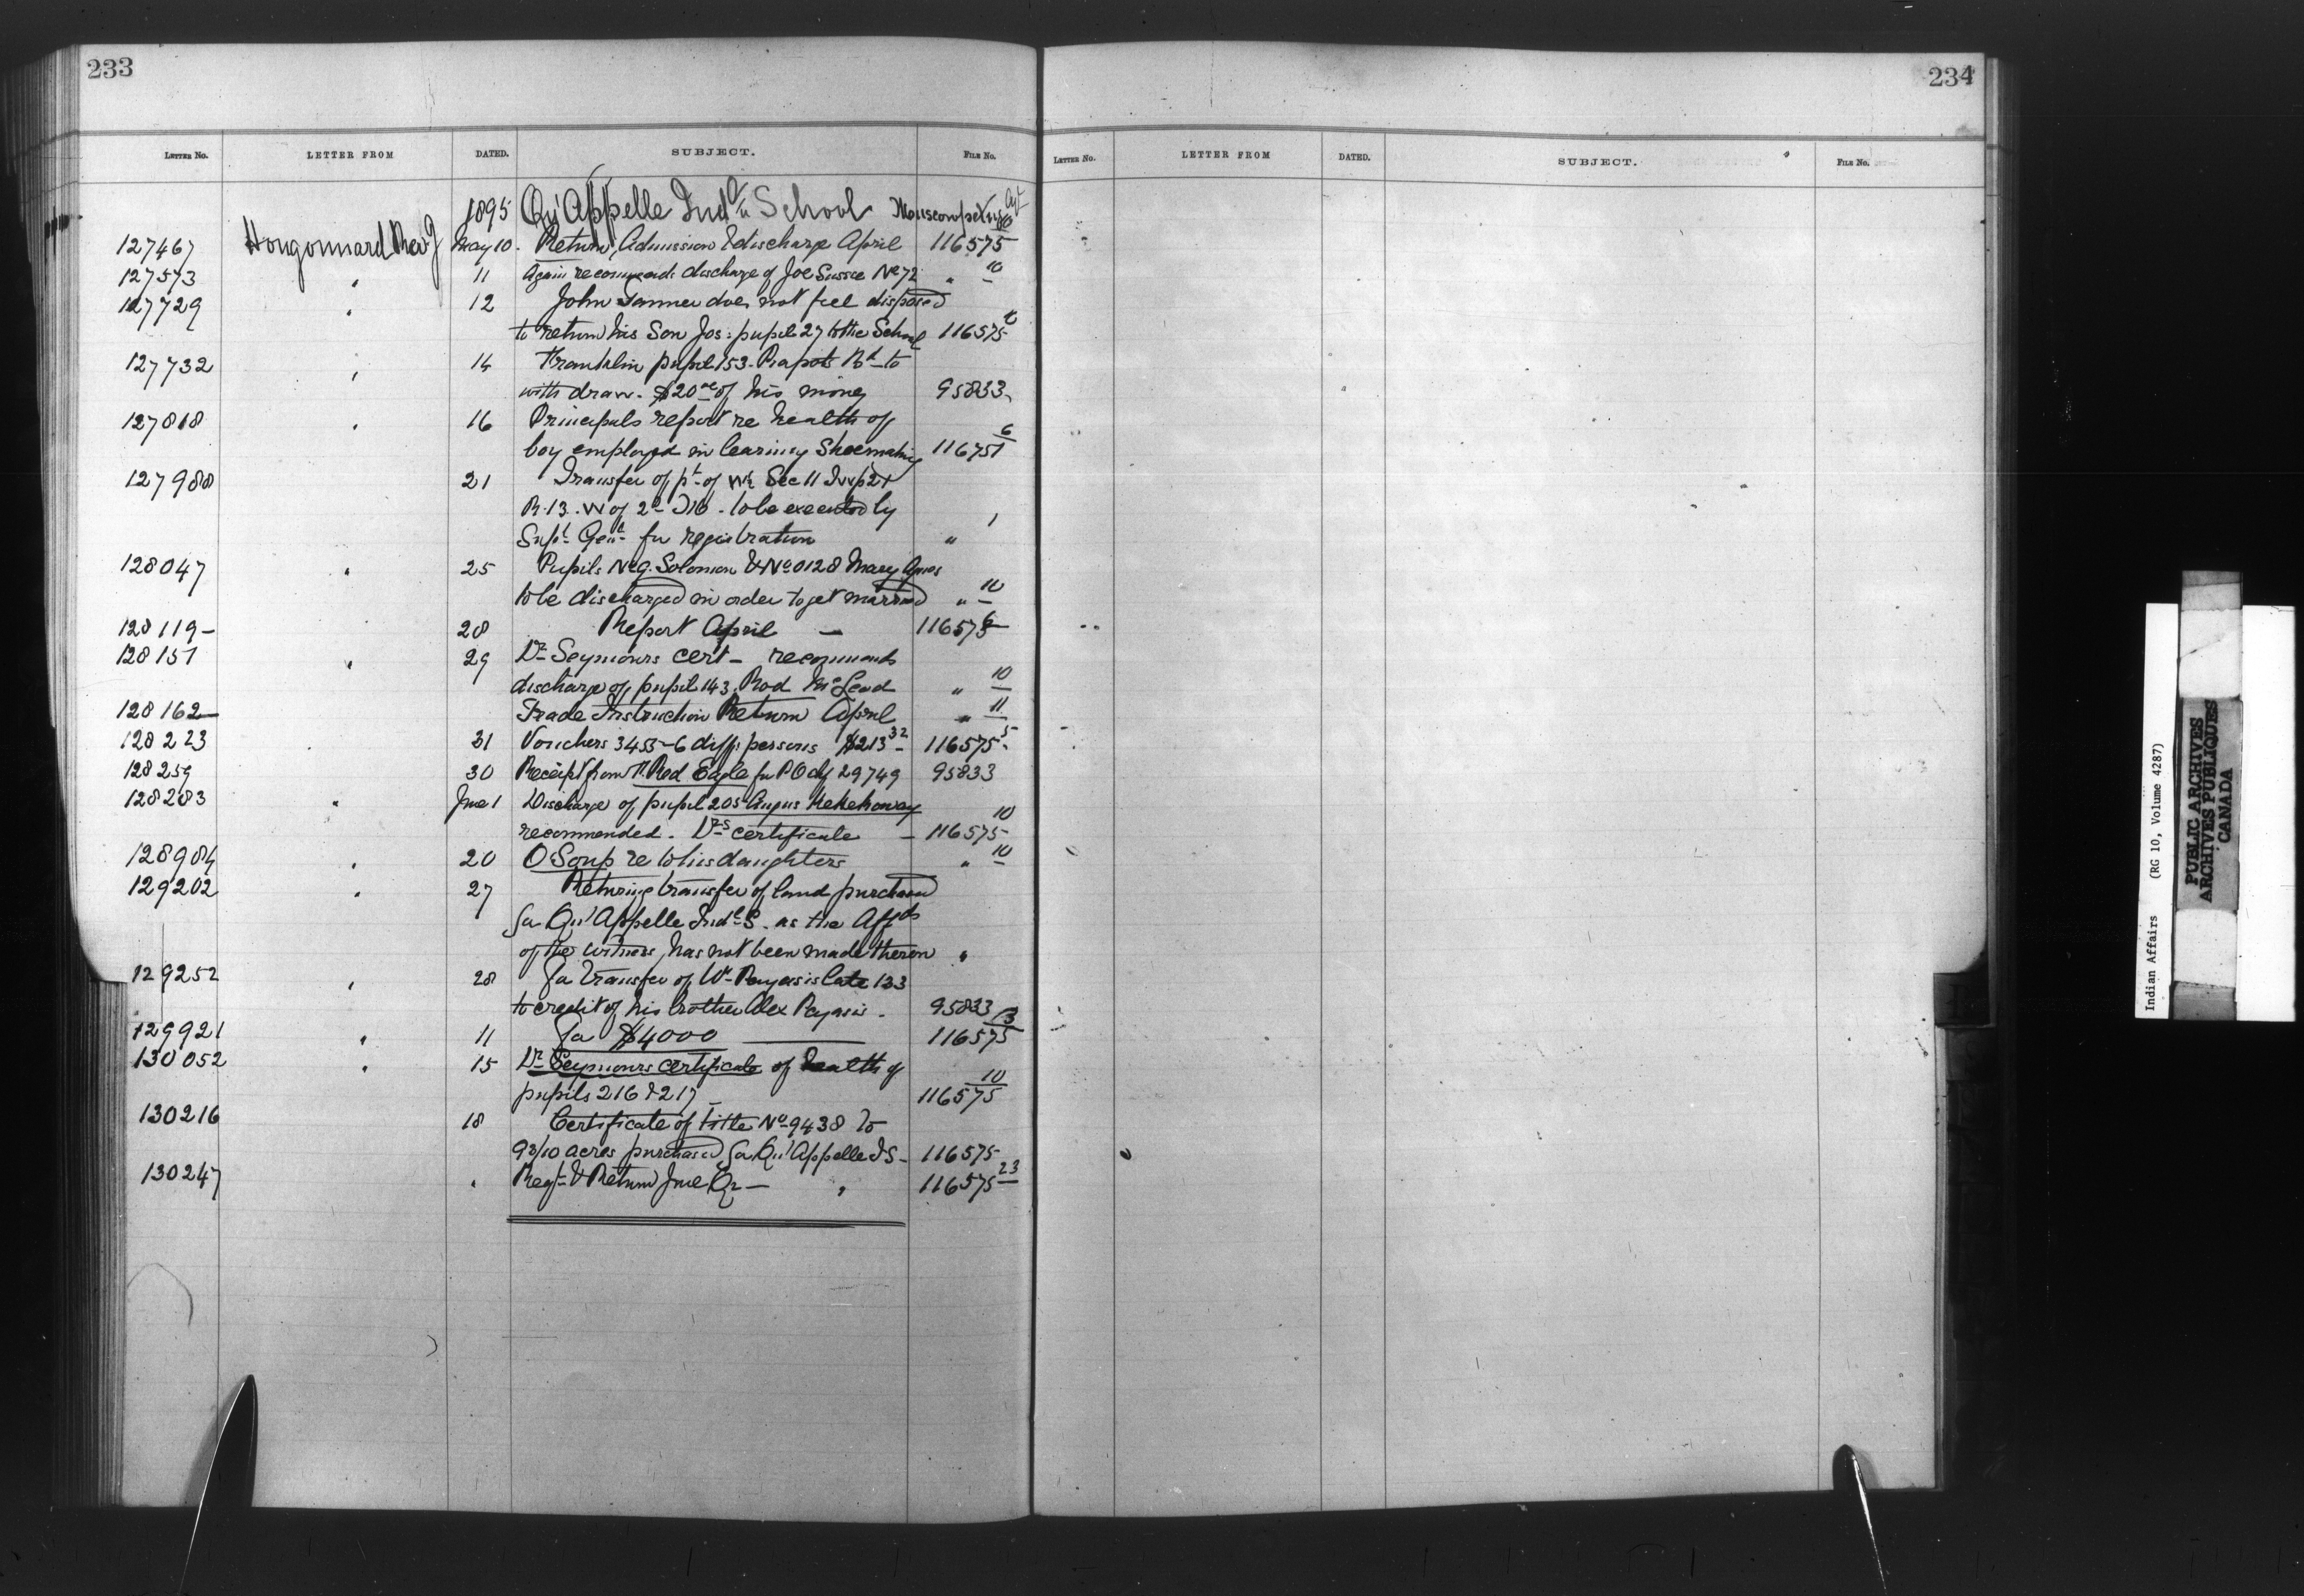 233
LETTER No. LETTER FROM DATED. SUBJECT. FILE No.
1895 Qu'Appelle Indl School
127467 Hougonnard Rev J May 10. Return, Admission & discharge April 116575
127573 " 11 Again recommends discharge of Joe Sussee No 72 " 10
127729 " 12 John Tanner does not feel disposed
to return his Son Jos: pupil 27 to the School 116575
127732 " 14 Franklin pupil 153. Piapots Bd to
with draw. $20 of his money 95833
127818 " 16 Principals report re health of
boy employed in learning Shoemaking 116751 6
127988 21 Transfer of pt of W½ Sec 11 Twp 21
R. 13. W of 2 to be executed by
Supt Genl for registration " 1
128047 " 25 Pupils No 9. Solomon & No 0128 Mary Agnes
to be discharged in order to get married " 10
128119 28 Report April — 116575 6
128151 " 29 Dr Seymours cert — recommends
discharge of pupil 143. Rod McLeod " 10
128162 Trade Instruction Return April " 11
128223 31 Vouchers 3455-6 diff: persons $213 32 116575 5
128259 30 Receipt from Red Eagle for P.O. 29749 95833
128283 " June 1 Discharge of pupil 205 Angus Kekehaway
recommended. Drs certificate — 116575 10
128984 " 20 O Soup re to his daughters " 10
129202 " 27 Returning transfer of land purchased
for Qu'Appelle Indl S. as the Affd
of the witness, has not been made thereon "
129252 " 28 For transfer of Payasis late 123
to credit of his brother Alex Payasis. 95833
129921 " 11 For $4000 — 116575 13
130052 " 15 Dr Seymours certificate of health of
pupils 216 & 217 116575 10
130216 18 Certificate of title No 9438 to
93/10 acres purchased for Qu'Appelle I S — 116575
130247 " Regr & Return June Qr — " 116575 23
234
LETTER No. LETTER FROM DATED. SUBJECT. FILE No.
Indian Affairs (RG 10, Volume 4287)
PUBLIC ARCHIVES
ARCHIVES PUBLIQUES
CANADA